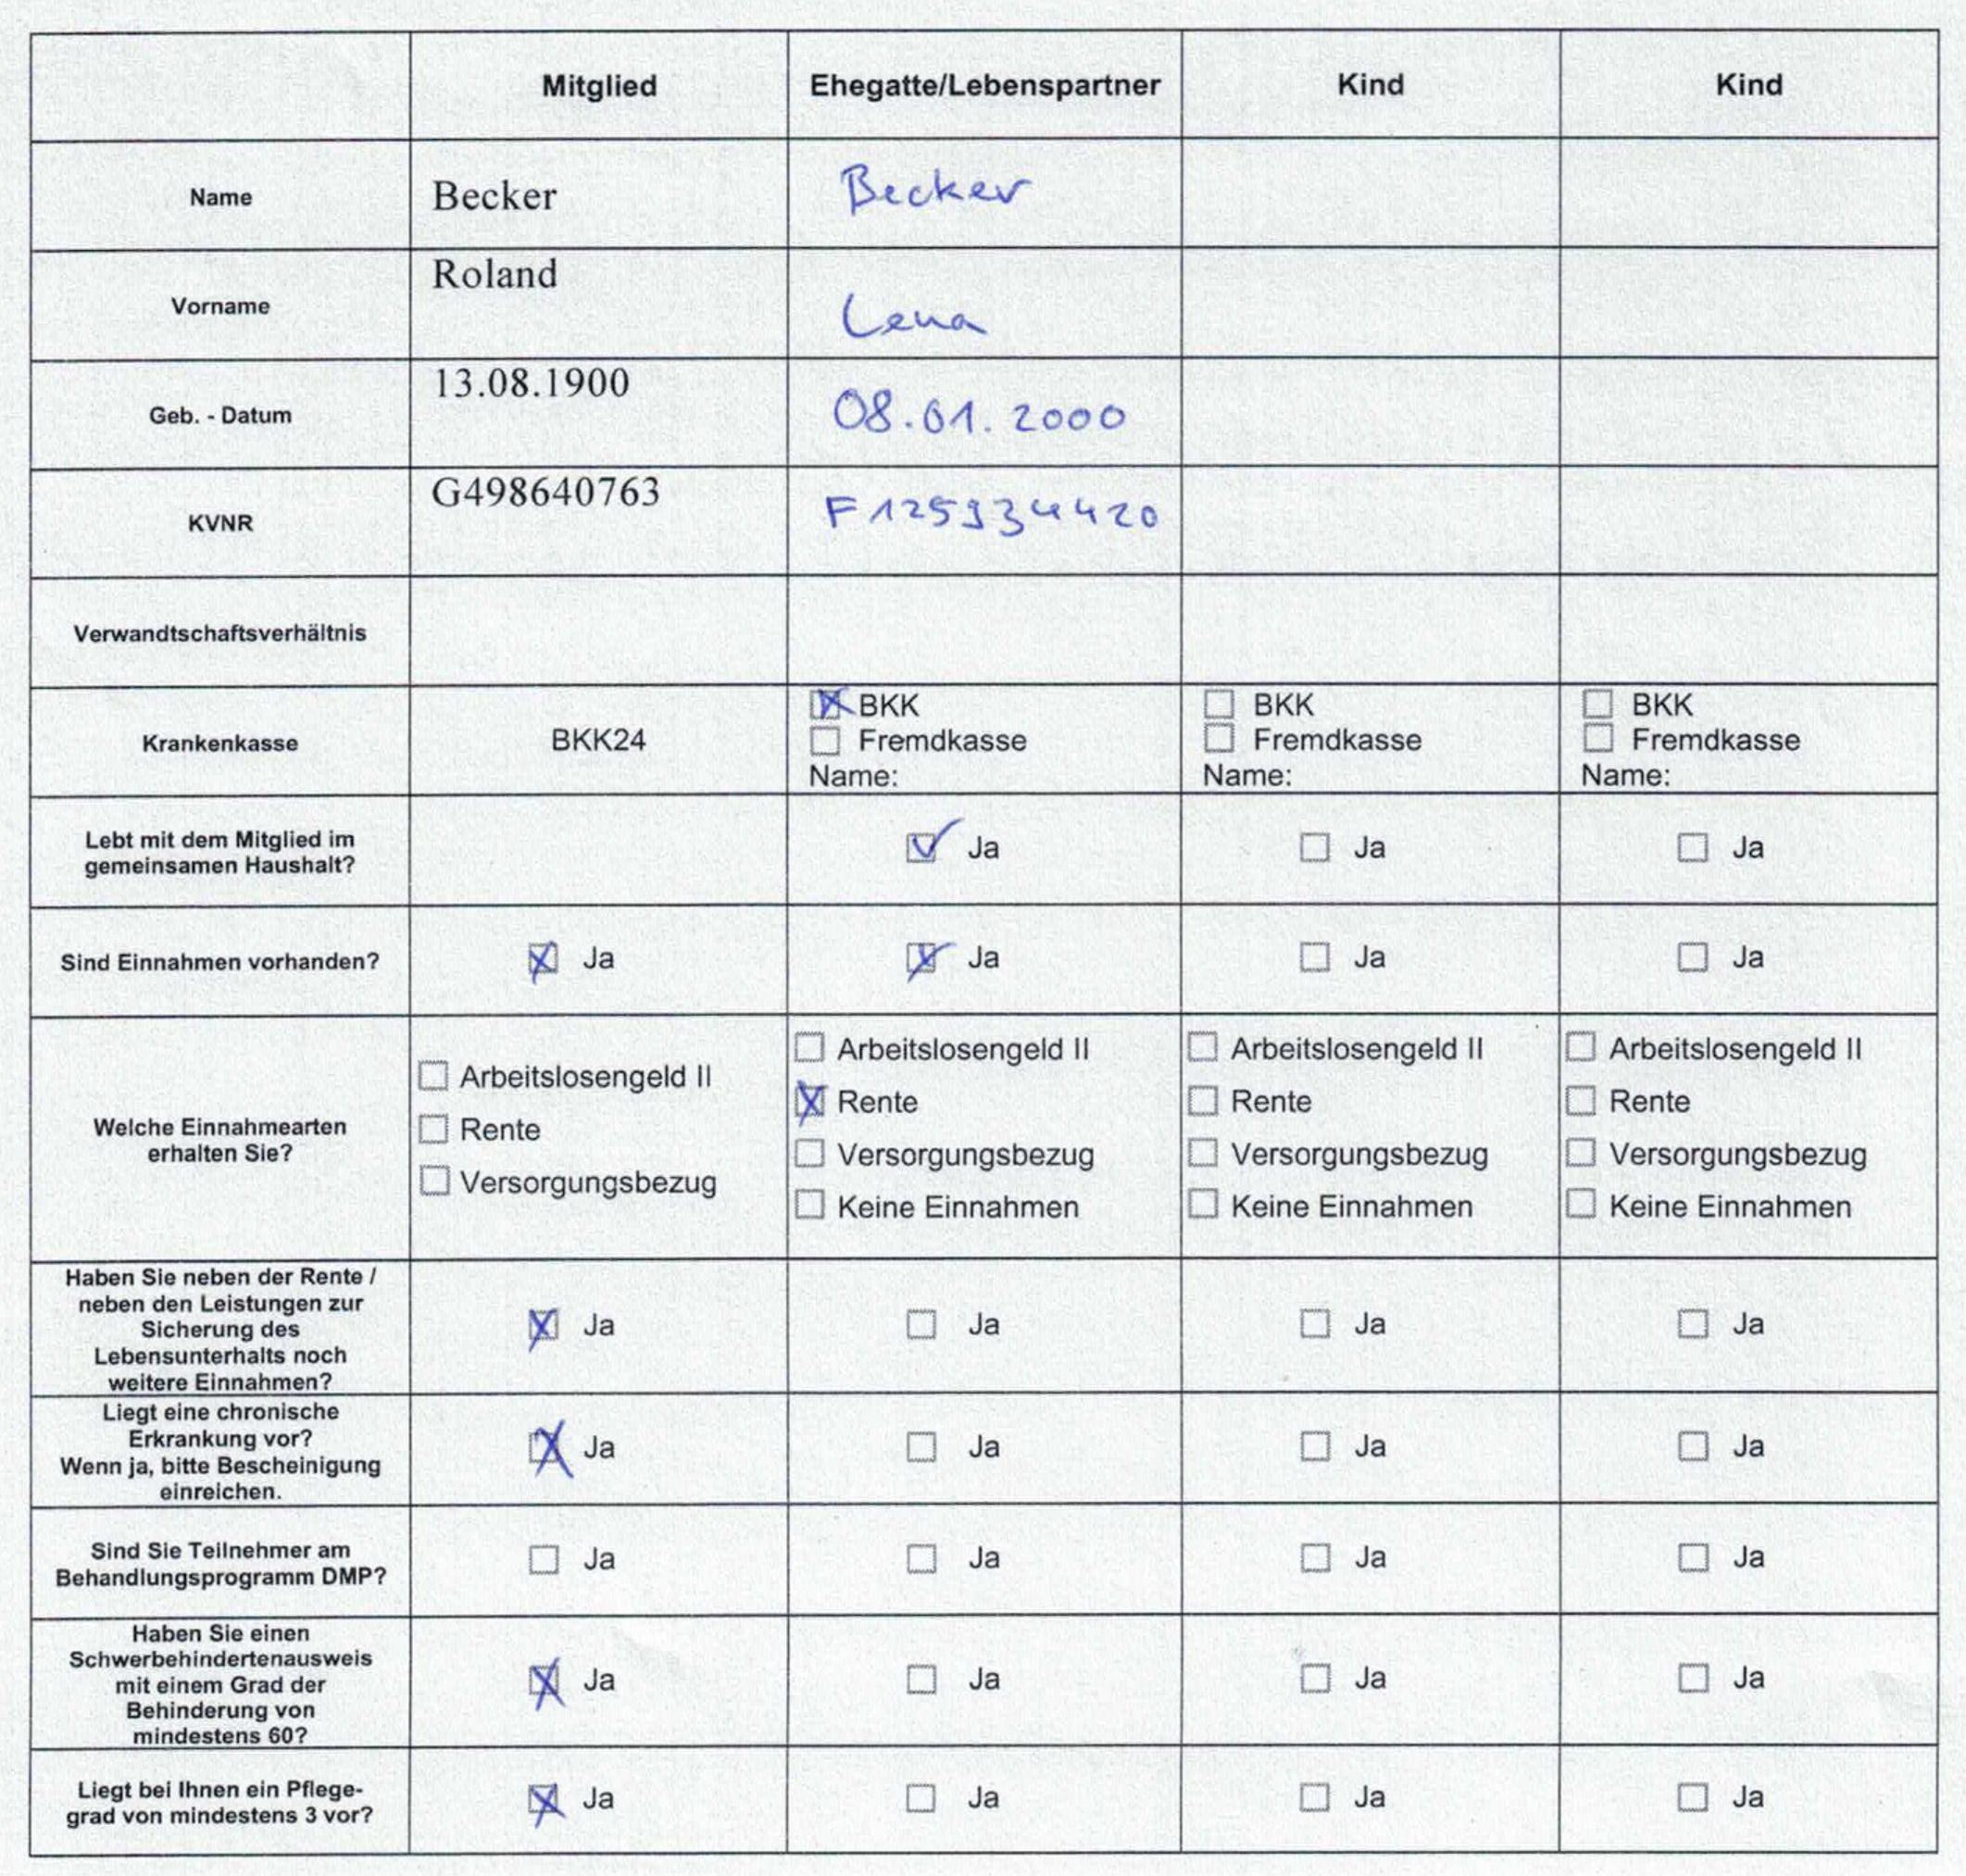 Mitglied Ehegatte/Lebenspartner Kind Kind
Name Becker Becker
Vorname Roland Lena
Geb. - Datum 13.08.1900 08.01.2000
KVNR G498640763 F125934420
Verwandtschaftsverhältnis
Krankenkasse BKK24
☒ BKK
☐ Fremdkasse
Name:
☐ BKK
☐ Fremdkasse
Name:
☐ BKK
☐ Fremdkasse
Name:
Lebt mit dem Mitglied im
gemeinsamen Haushalt?
☑ Ja ☐ Ja ☐ Ja
Sind Einnahmen vorhanden? ☒ Ja ☒ Ja ☐ Ja ☐ Ja
Welche Einnahmearten
erhalten Sie?
☐ Arbeitslosengeld II
☐ Rente
☐ Versorgungsbezug
☐ Arbeitslosengeld II
☒ Rente
☐ Versorgungsbezug
☐ Keine Einnahmen
☐ Arbeitslosengeld II
☐ Rente
☐ Versorgungsbezug
☐ Keine Einnahmen
☐ Arbeitslosengeld II
☐ Rente
☐ Versorgungsbezug
☐ Keine Einnahmen
Haben Sie neben der Rente /
neben den Leistungen zur
Sicherung des
Lebensunterhalts noch
weitere Einnahmen?
☒ Ja ☐ Ja ☐ Ja ☐ Ja
Liegt eine chronische
Erkrankung vor?
Wenn ja, bitte Bescheinigung
einreichen.
☒ Ja ☐ Ja ☐ Ja ☐ Ja
Sind Sie Teilnehmer am
Behandlungsprogramm DMP?
☐ Ja ☐ Ja ☐ Ja ☐ Ja
Haben Sie einen
Schwerbehindertenausweis
mit einem Grad der
Behinderung von
mindestens 60?
☒ Ja ☐ Ja ☐ Ja ☐ Ja
Liegt bei Ihnen ein Pflege-
grad von mindestens 3 vor?
☒ Ja ☐ Ja ☐ Ja ☐ Ja